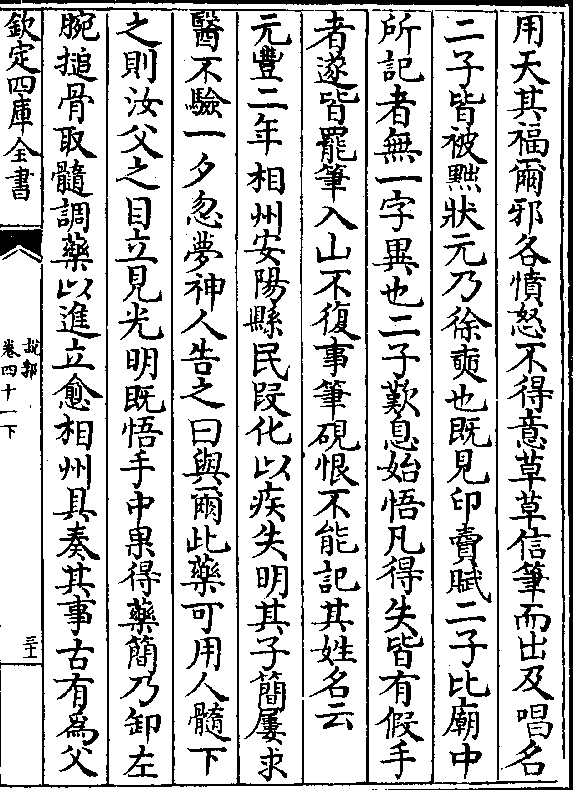 用天其福爾邪各憤怒不得意草草信筆而出及唱名
二子皆被黜狀元乃徐奭也既見印賣賦二子比廟中
所記者無一字異也二子歎息始悟凡得失皆有假手
者遂皆罷筆入山不復事筆硯恨不能記其姓名云
元豐二年相州安陽縣民段化以疾失明其子簡屢求
醫不驗一夕忽夢神人告之曰與爾此藥可用人髓下
之則汝父之目立見光明既悟手中果得藥簡乃卸左
腕搥骨取髓調藥以進立愈相州具奏其事古有為父
欽定四庫全書
說郛
卷四十一下
三十